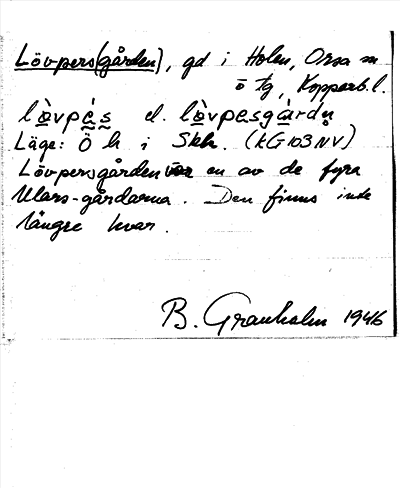 Lövpers(gården), gd i Holen, Orsa sn
ö tg, Kopparb. l.
lòvpa̰s̰ el. lòvpesgàrdn̥
Läge: Ö h i Skh. (kG103NV)
Lövpersgården var en av de fyra
Mars-gårdarna. Den finns inte
längre kvar.
B. Granholm 1946